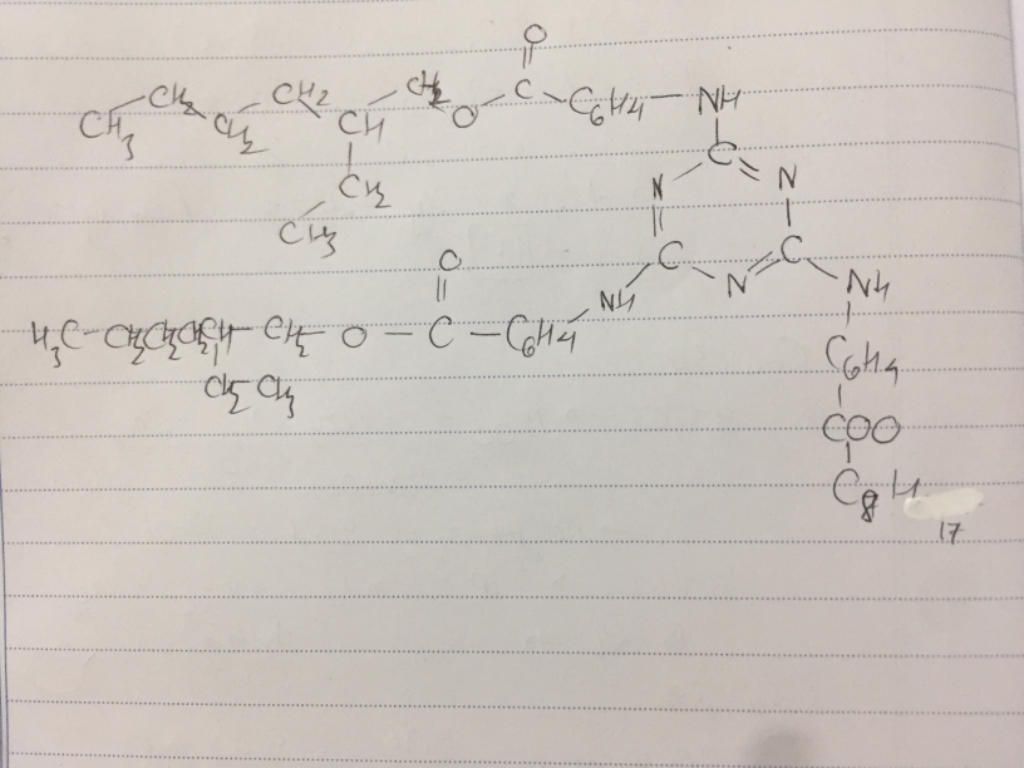 O
CH3 CH2 CH2 CH2 CH CH2 O C C6H4 NH
CH2
CH3
C
N N
C N C
NH NH
O
H3C CH2 CH2 CH2 CH CH2 O C C6H4
CH2 CH3
C6H4
COO
C8H17